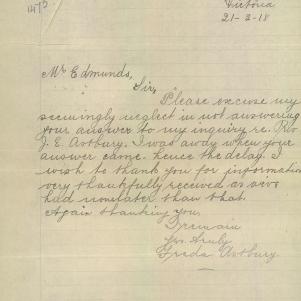 1475
Victoria
21-3-18
Mr Edmunds,
Sir,
Please excuse my
seemingly neglect in not answering
your answer to my inquiry re. Rev
J. E. Astbury. I was away when your
answer came. hence the delay. I
wish to thank you for information
very thankfully received, as we
had none later than that.
Again thanking you,
I remain
Yrs truly
Freda Astbury.